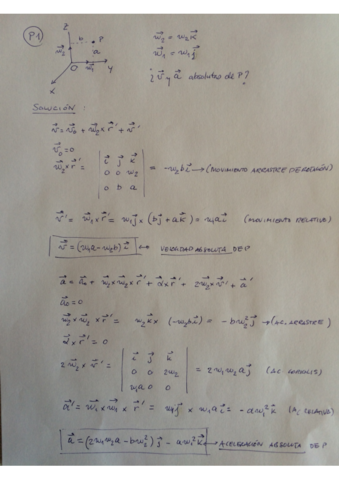 P1
z
b
P
w⃗₂
a
O
w⃗₁
y
x
w⃗₂ = w₂k⃗
w⃗₁ = w₁j⃗
¿ v⃗ y a⃗ absolutas de P?
Solución:
v⃗ = v⃗₀ + w⃗₂ x r⃗' + v⃗'
v⃗₀ = 0
w⃗₂ x r⃗' = | i⃗ j⃗ k⃗ | 0 0 w₂ | 0 b a | = -w₂b i⃗ → (MOVIMIENTO ARRASTRE DE ROTACIÓN)
v⃗' = w⃗₁ x r⃗' = w₁j⃗ x (bj⃗ + ak⃗) = w₁a i⃗ (MOVIMIENTO RELATIVO)
v⃗ = (w₁a - w₂b) i⃗ ↔ VELOCIDAD ABSOLUTA DE P
a⃗ = a⃗₀ + w⃗₂ x w⃗₂ x r⃗' + α⃗ x r⃗' + 2w⃗₂ x v⃗' + a⃗'
a⃗₀ = 0
w⃗₂ x w⃗₂ x r⃗' = w₂k⃗ x (-w₂b i⃗) = -bw₂² j⃗ → (AC. ARRASTRE)
α⃗ x r⃗' = 0
2w⃗₂ x v⃗' = | i⃗ j⃗ k⃗ | 0 0 2w₂ | w₁a 0 0 | = 2w₁w₂a j⃗ (AC. CORIOLIS)
a⃗' = w⃗₁ x w⃗₁ x r⃗' = w₁j⃗ x w₁a i⃗ = -aw₁² k⃗
a⃗ = (2w₁w₂a - bw₂²) j⃗ - aw₁² k⃗ → ACELERACIÓN ABSOLUTA DE P